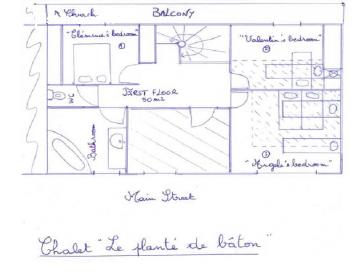 Church
BALCONY
"Eléonore's bedroom"
①
"Valentin's bedroom"
②
WC
FIRST FLOOR
50 m2
Bathroom
③
"Angele's bedroom"
Main Street
Chalet "Le planté de bâton"